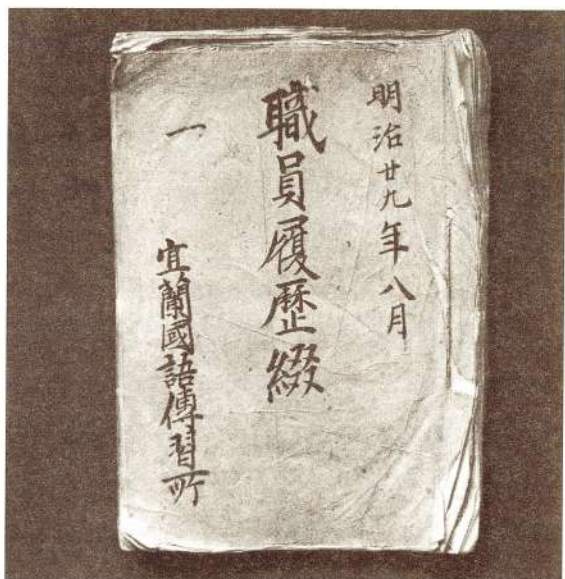 明治廿九年八月
職員履歴綴
一
宜蘭國語傳習所